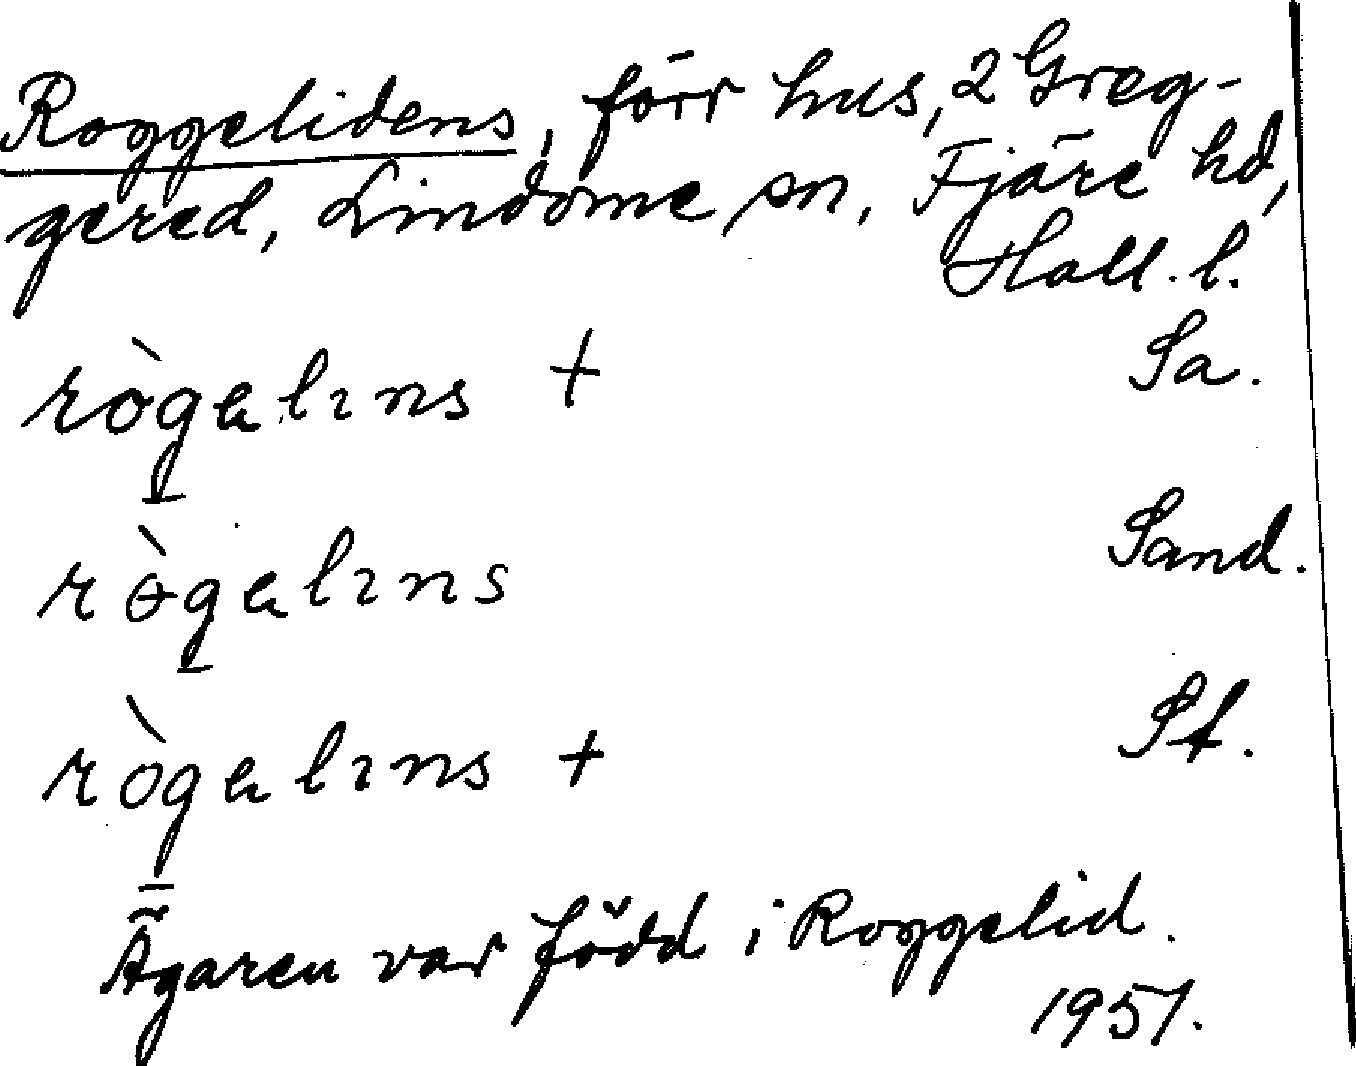 Roggelidens, förr hus, 2 Greg-
gered, Lindome sn, Fjäre hd,
Hall. l.
rògelıns + Sa.
rɵ̀gelıns Sand.
rògelıns + St.
Ägaren var född i Roggelid.
1951.